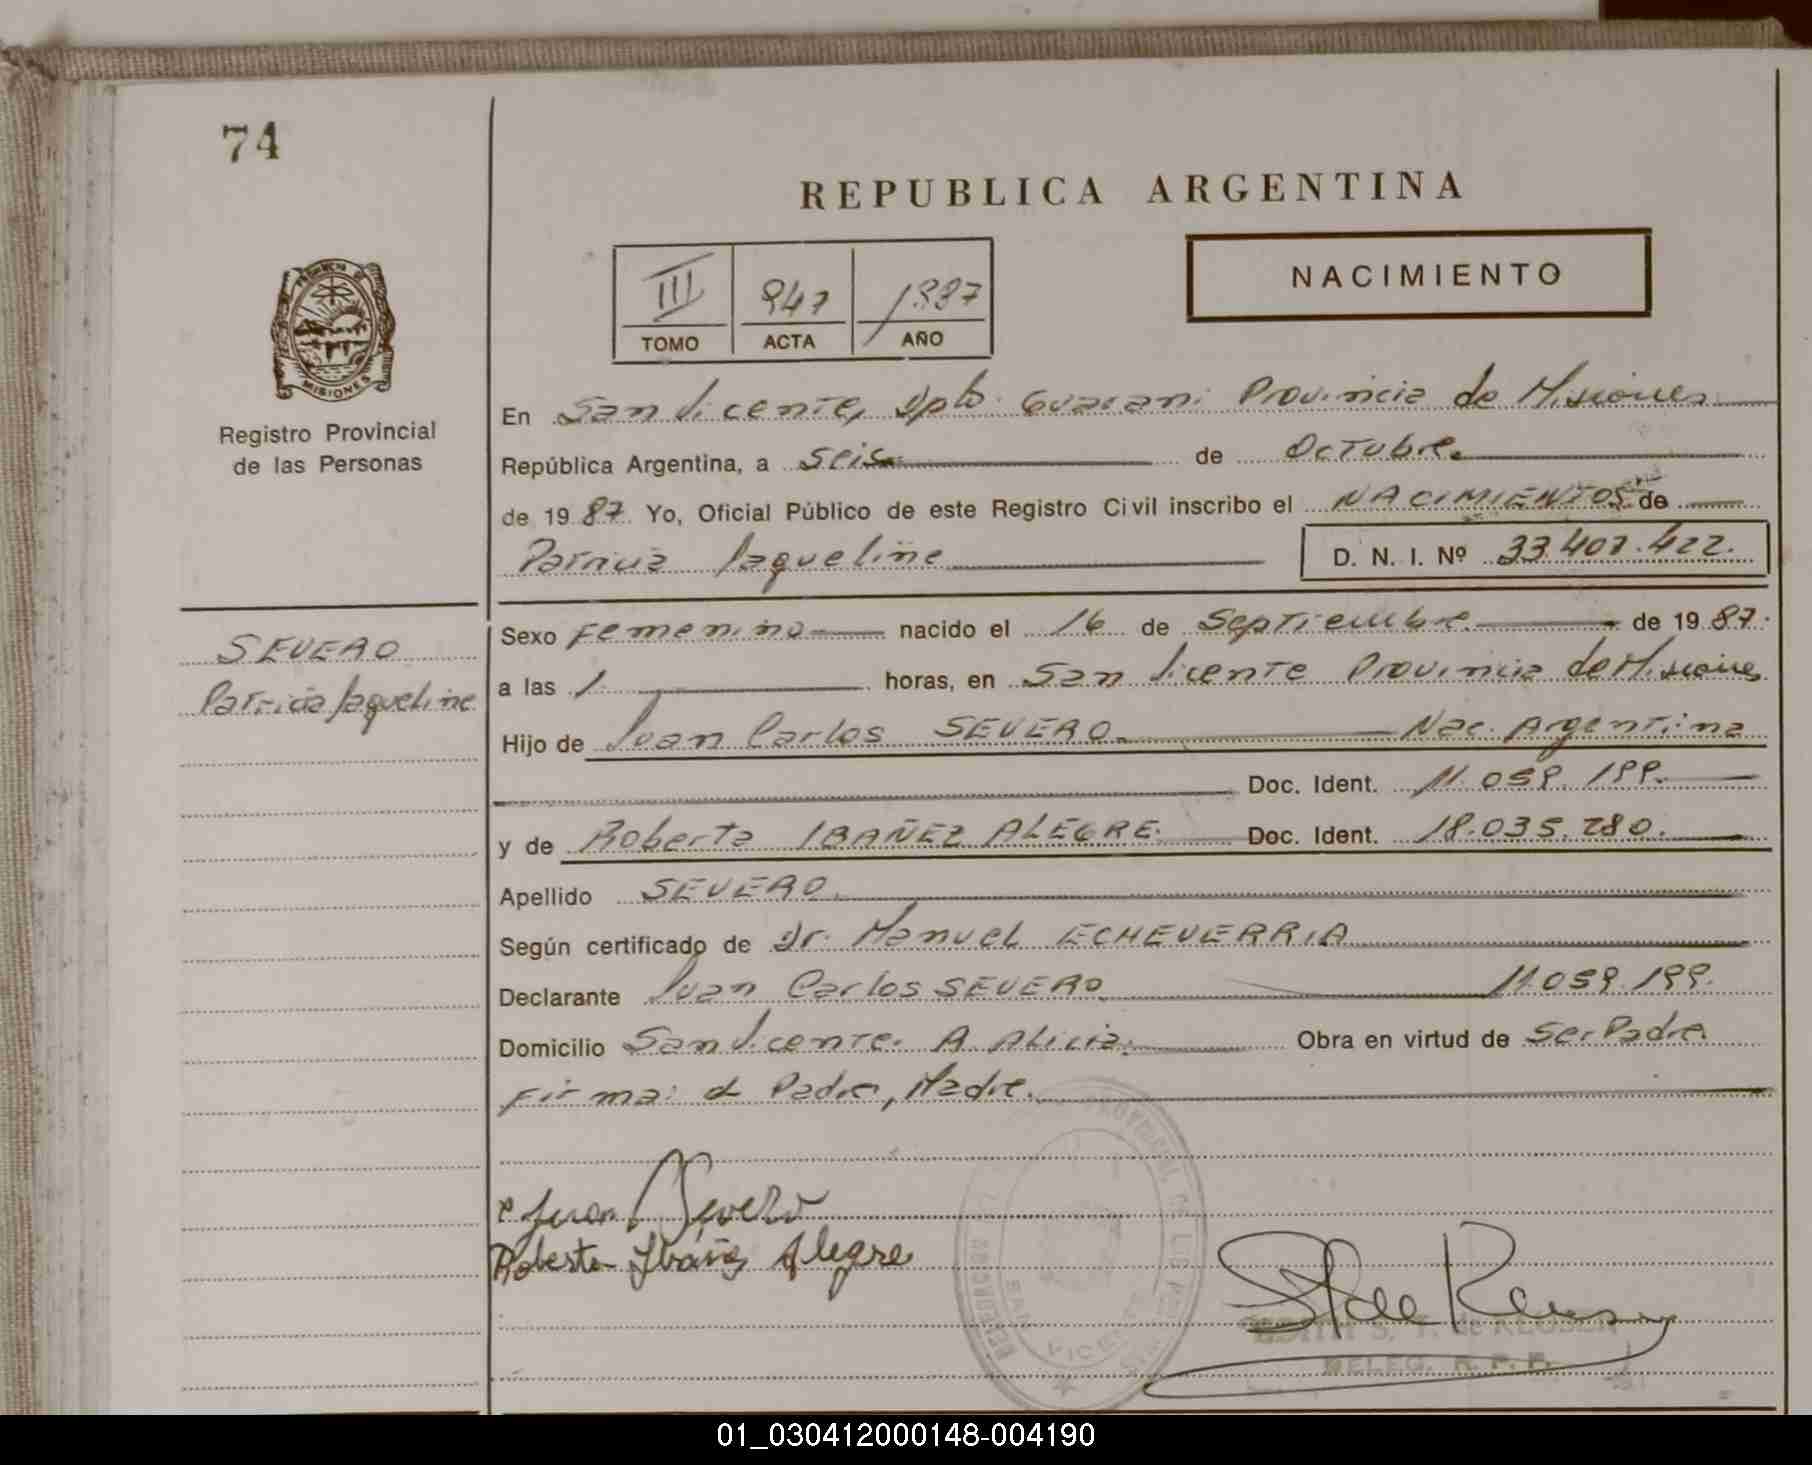 74
REPUBLICA ARGENTINA
NACIMIENTO
III 947 1987
TOMO ACTA AÑO
PROVINCIA DE
MISIONES
Registro Provincial
de las Personas
En San Vicente, Dpto. Guarani Provincia de Misiones
República Argentina, a seis de Octubre
de 1987 Yo, Oficial Público de este Registro Civil inscribo el NACIMIENTOS de
Patricia Jaqueline D. N. I. Nº 33.407.422.
SEVERO
Patricia Jaqueline
Sexo Femenino nacido el 16 de Septiembre de 1987.
a las 1. horas, en San Vicente Provincia de Misiones
Hijo de Juan Carlos SEVERO. Nac. Argentina
Doc. Ident. 11.059.199.
y de Roberta IBAÑEZ ALEGRE. Doc. Ident. 18.035.780.
Apellido SEVERO.
Según certificado de Dr. Manuel ECHEVERRIA
Declarante Juan Carlos SEVERO 11.059.199.
Domicilio San Vicente. A. Alicia. Obra en virtud de Ser Padre
Firma: Padre, Madre.
Juan Severo
Roberta Ibañez Alegre
SAN VICENTE
S. T. de REUSEN
DELEG. R. P. P.
01_030412000148-004190